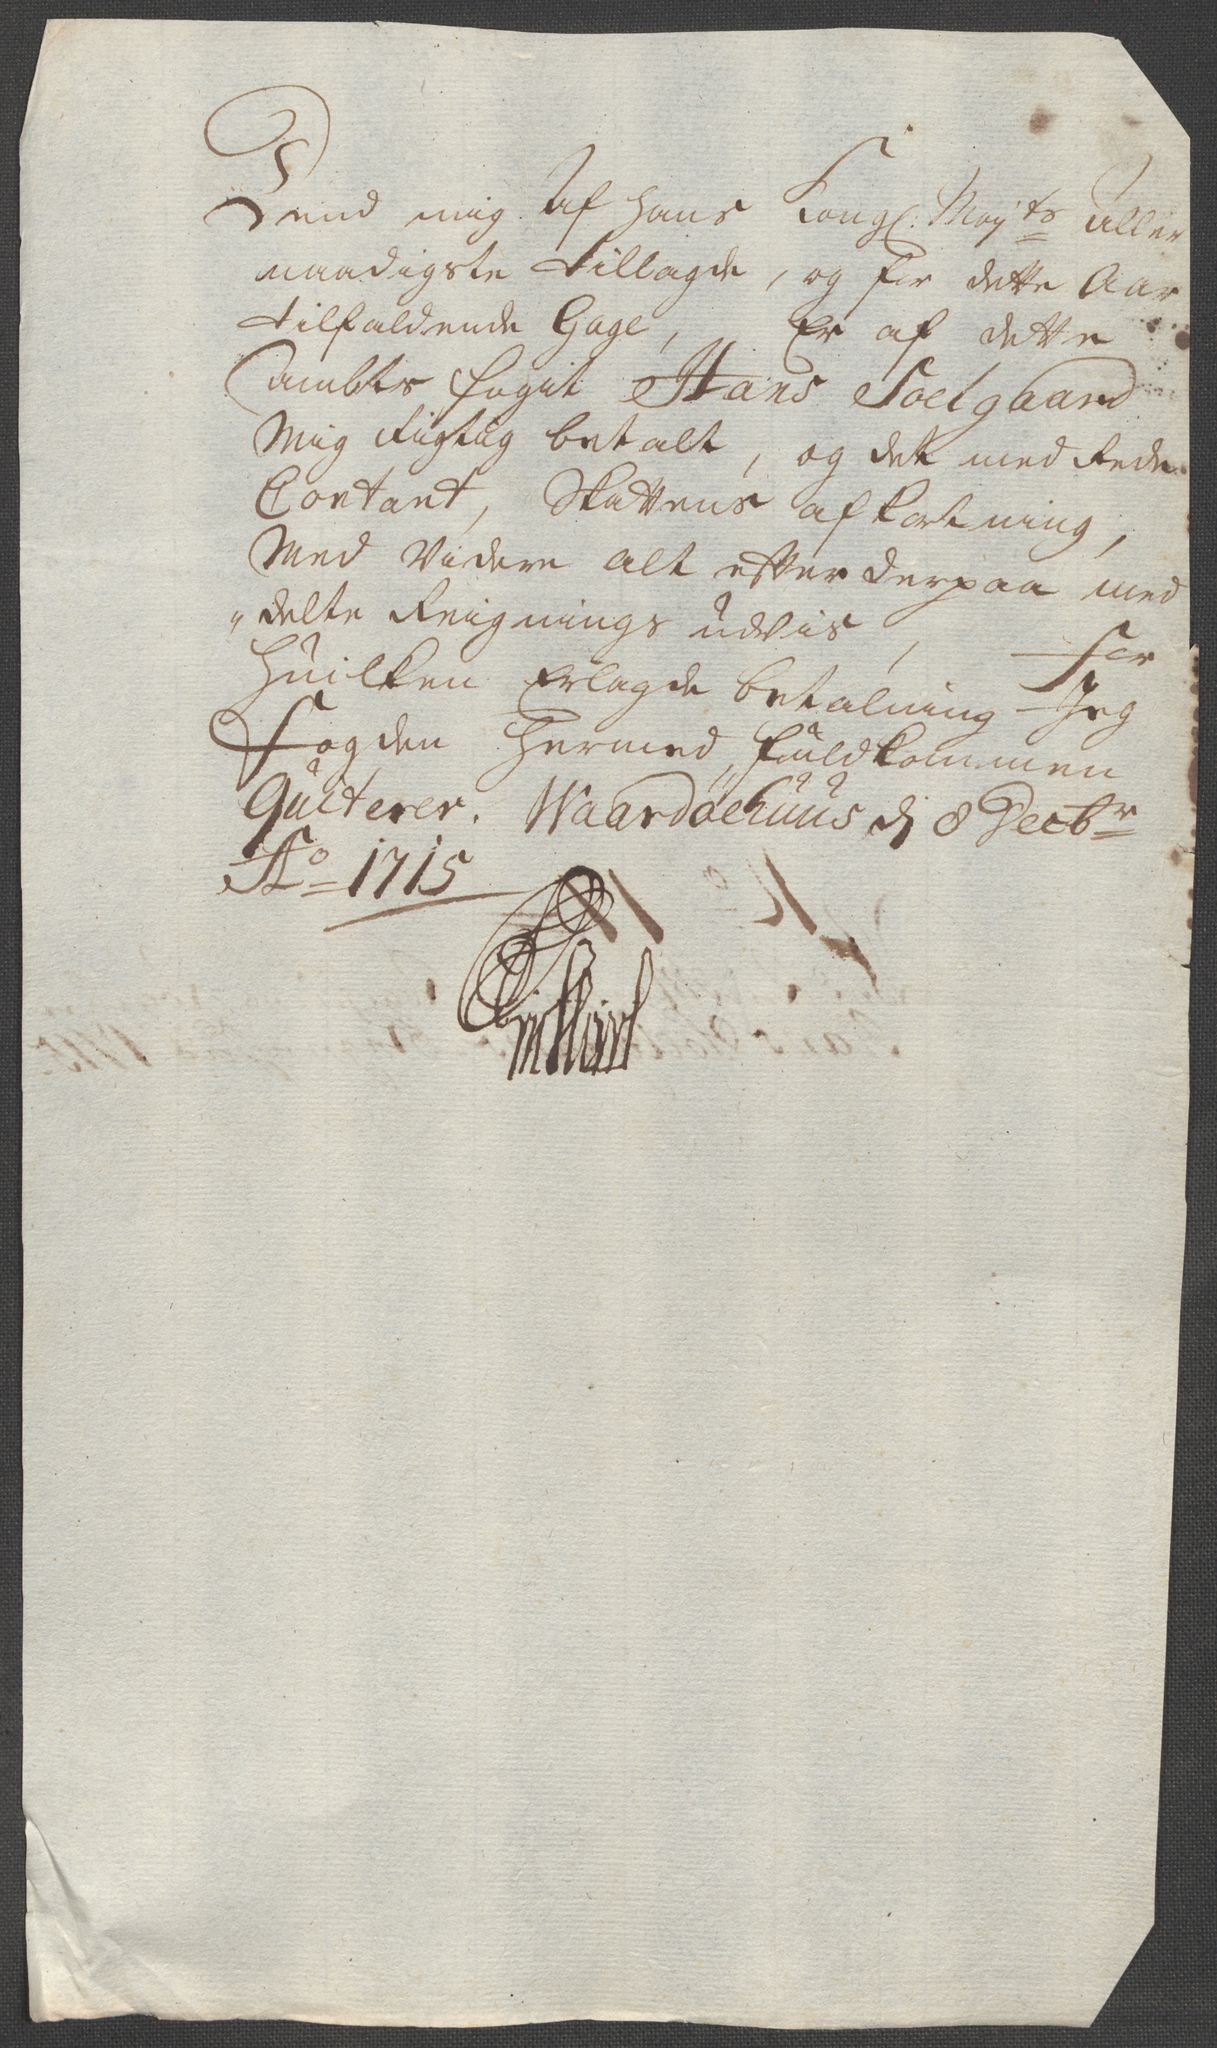 Dend mig af hans Kongl: Mayts aller
naadigste tillagde, og for dette Aar
tilfaldende Gage, Er af dette
ambts fogit Hans Soelgaard
Mig rigtig betalt, og det med Rede
Contant, Skattens afkortning,
Med Videre alt efter derpaa med
"delte Reignings udvis, For
huilken Erlagde betalning Jeg
Fogden Hermed fuldkommen
Quiterer. Waardøehuus dj 8 Decbr
Ao 1715